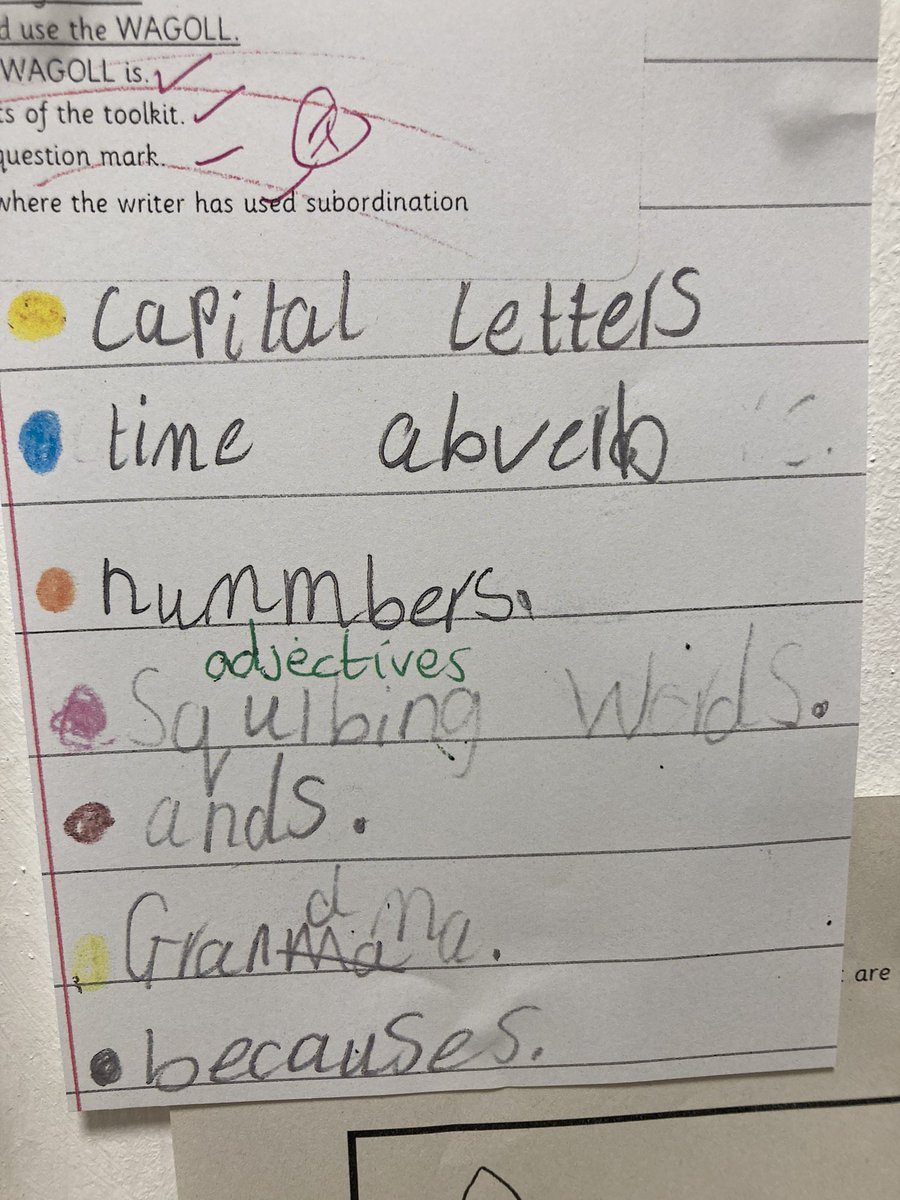 d use the WAGOLL.
WAGOLL is.
ts of the toolkit.
question mark.
where the writer has used subordination
capital letters
time abverb
nummbers.
adjectives
Squibing words.
ands.
Grandma.
becauses.
are